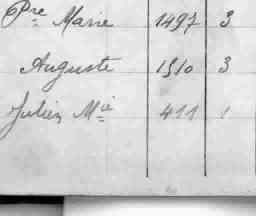 Pre Marie 1497 3
Auguste 1510 3
Julien Mie 411 1